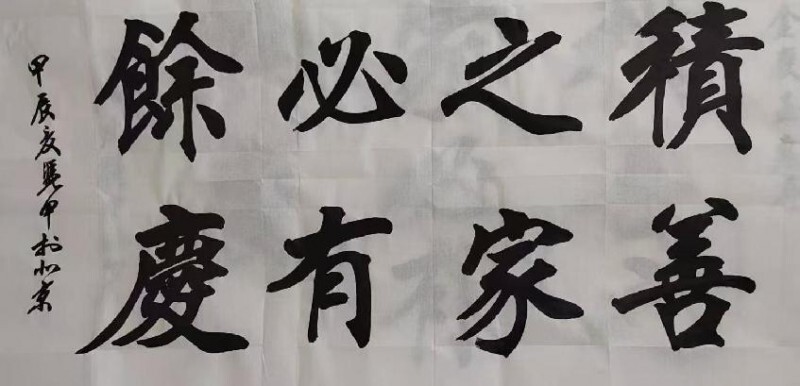 積善
之家
必有
餘慶
甲辰夏 甲於北京